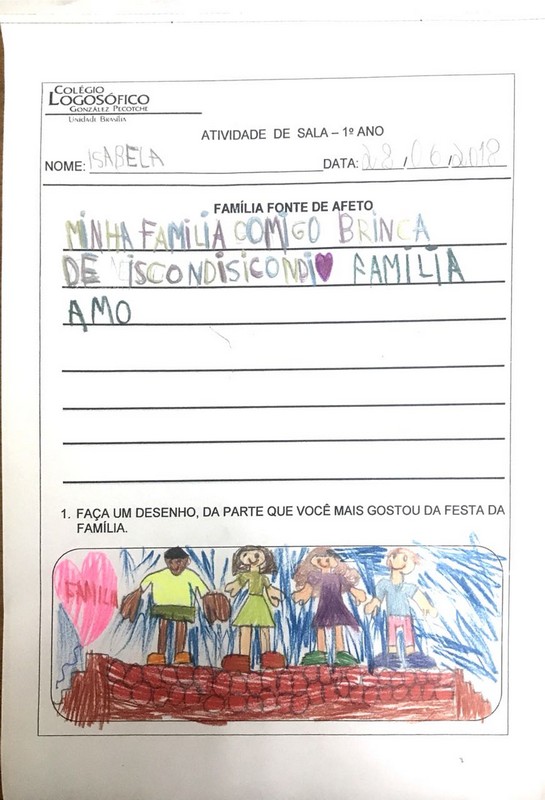 COLÉGIO
LOGOSÓFICO
GONZÁLEZ PECOTCHE
Unidade Brasília
ATIVIDADE DE SALA – 1º ANO
NOME: ISABELA DATA: 28/06/2018
FAMÍLIA FONTE DE AFETO
MINHA FAMILIA COMIGO BRINCA
DE ISCONDISICONDI FAMÍLIA
AMO
1. FAÇA UM DESENHO, DA PARTE QUE VOCÊ MAIS GOSTOU DA FESTA DA
FAMÍLIA.
FAMILIA